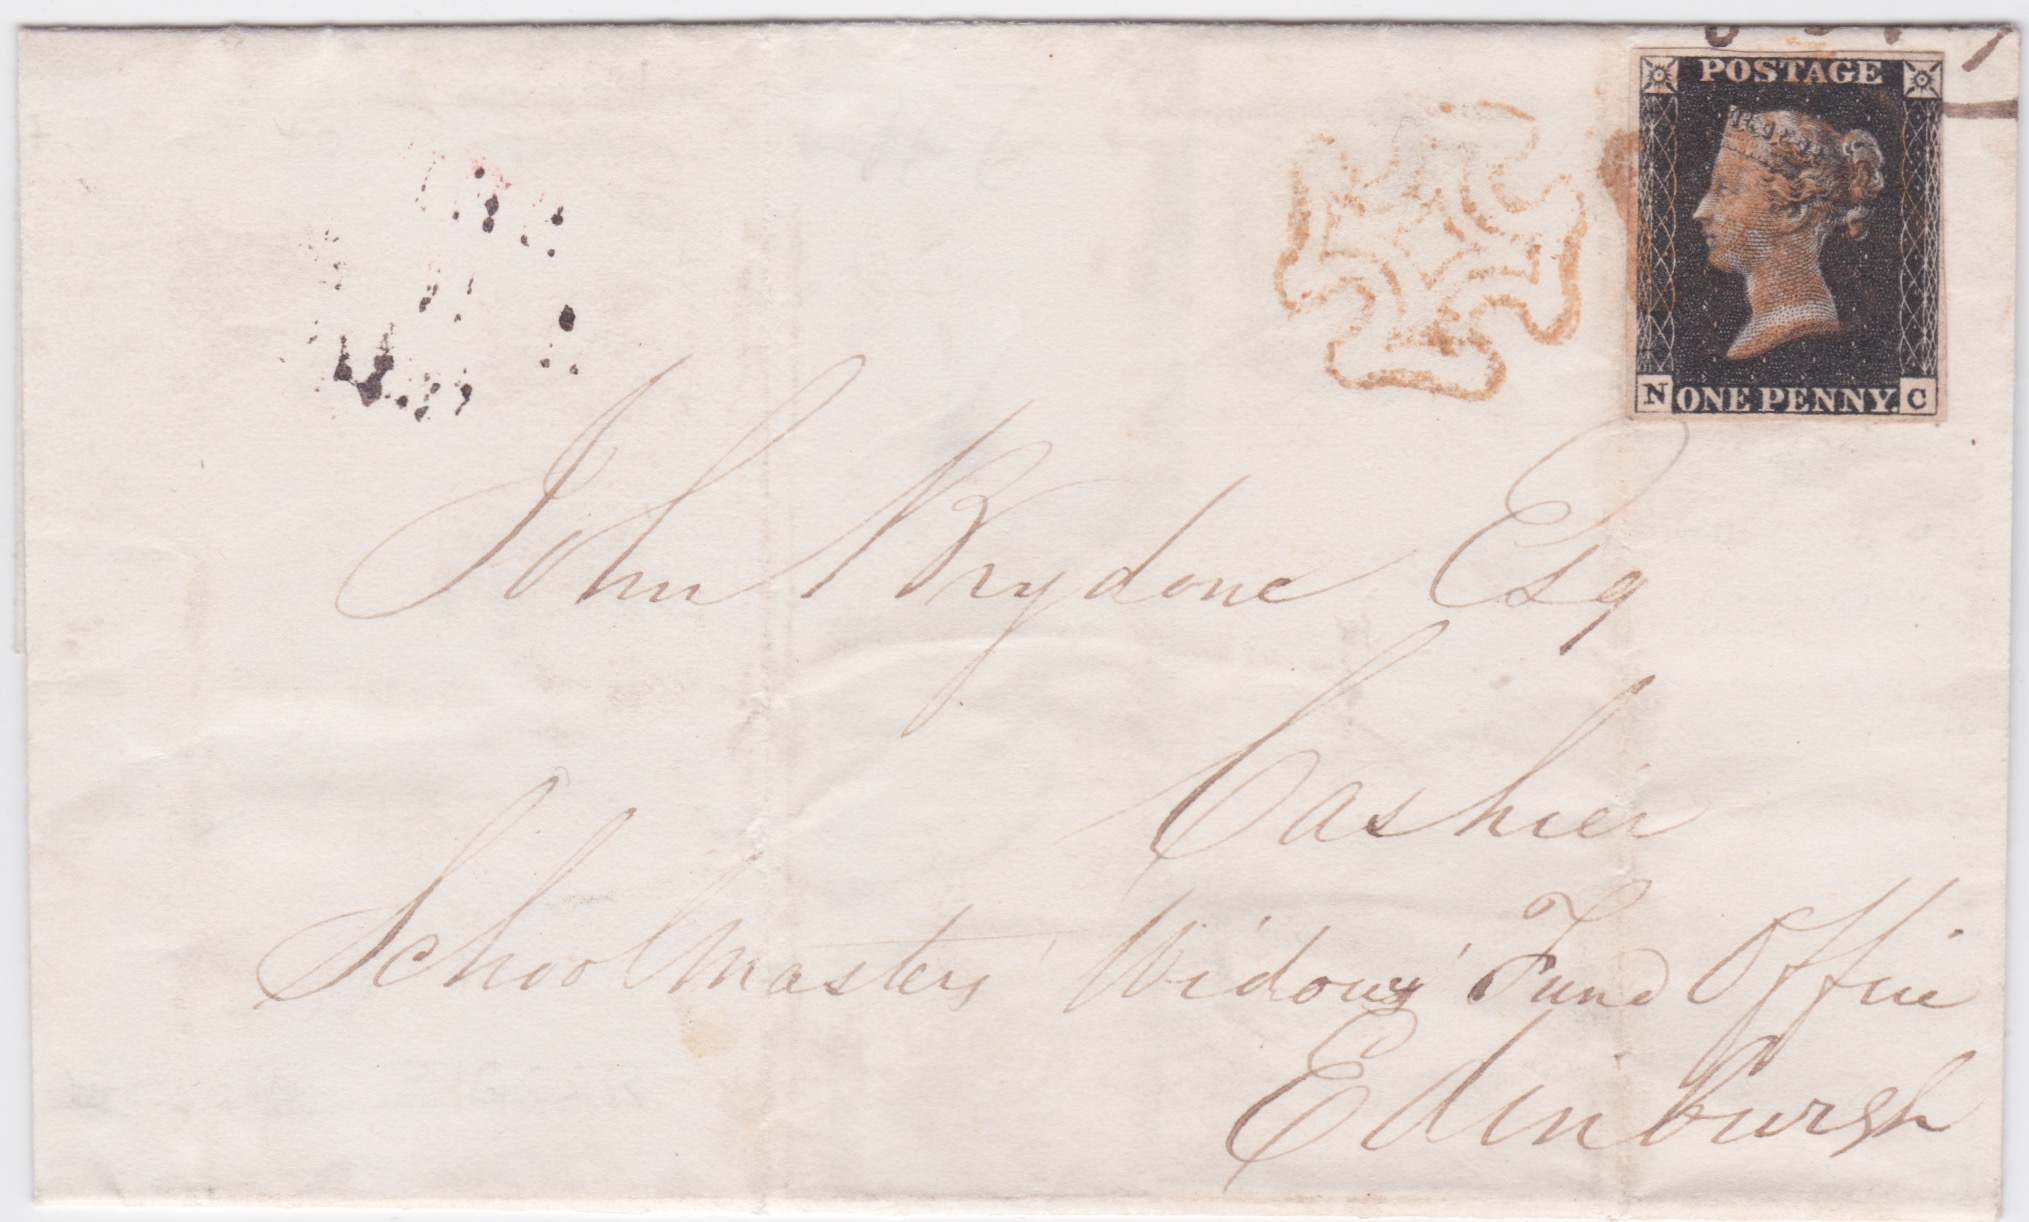 POSTAGE
N ONE PENNY. C
John Brydone Esq
Cashier
Schoolmasters' Widows' Fund Office
Edinburgh